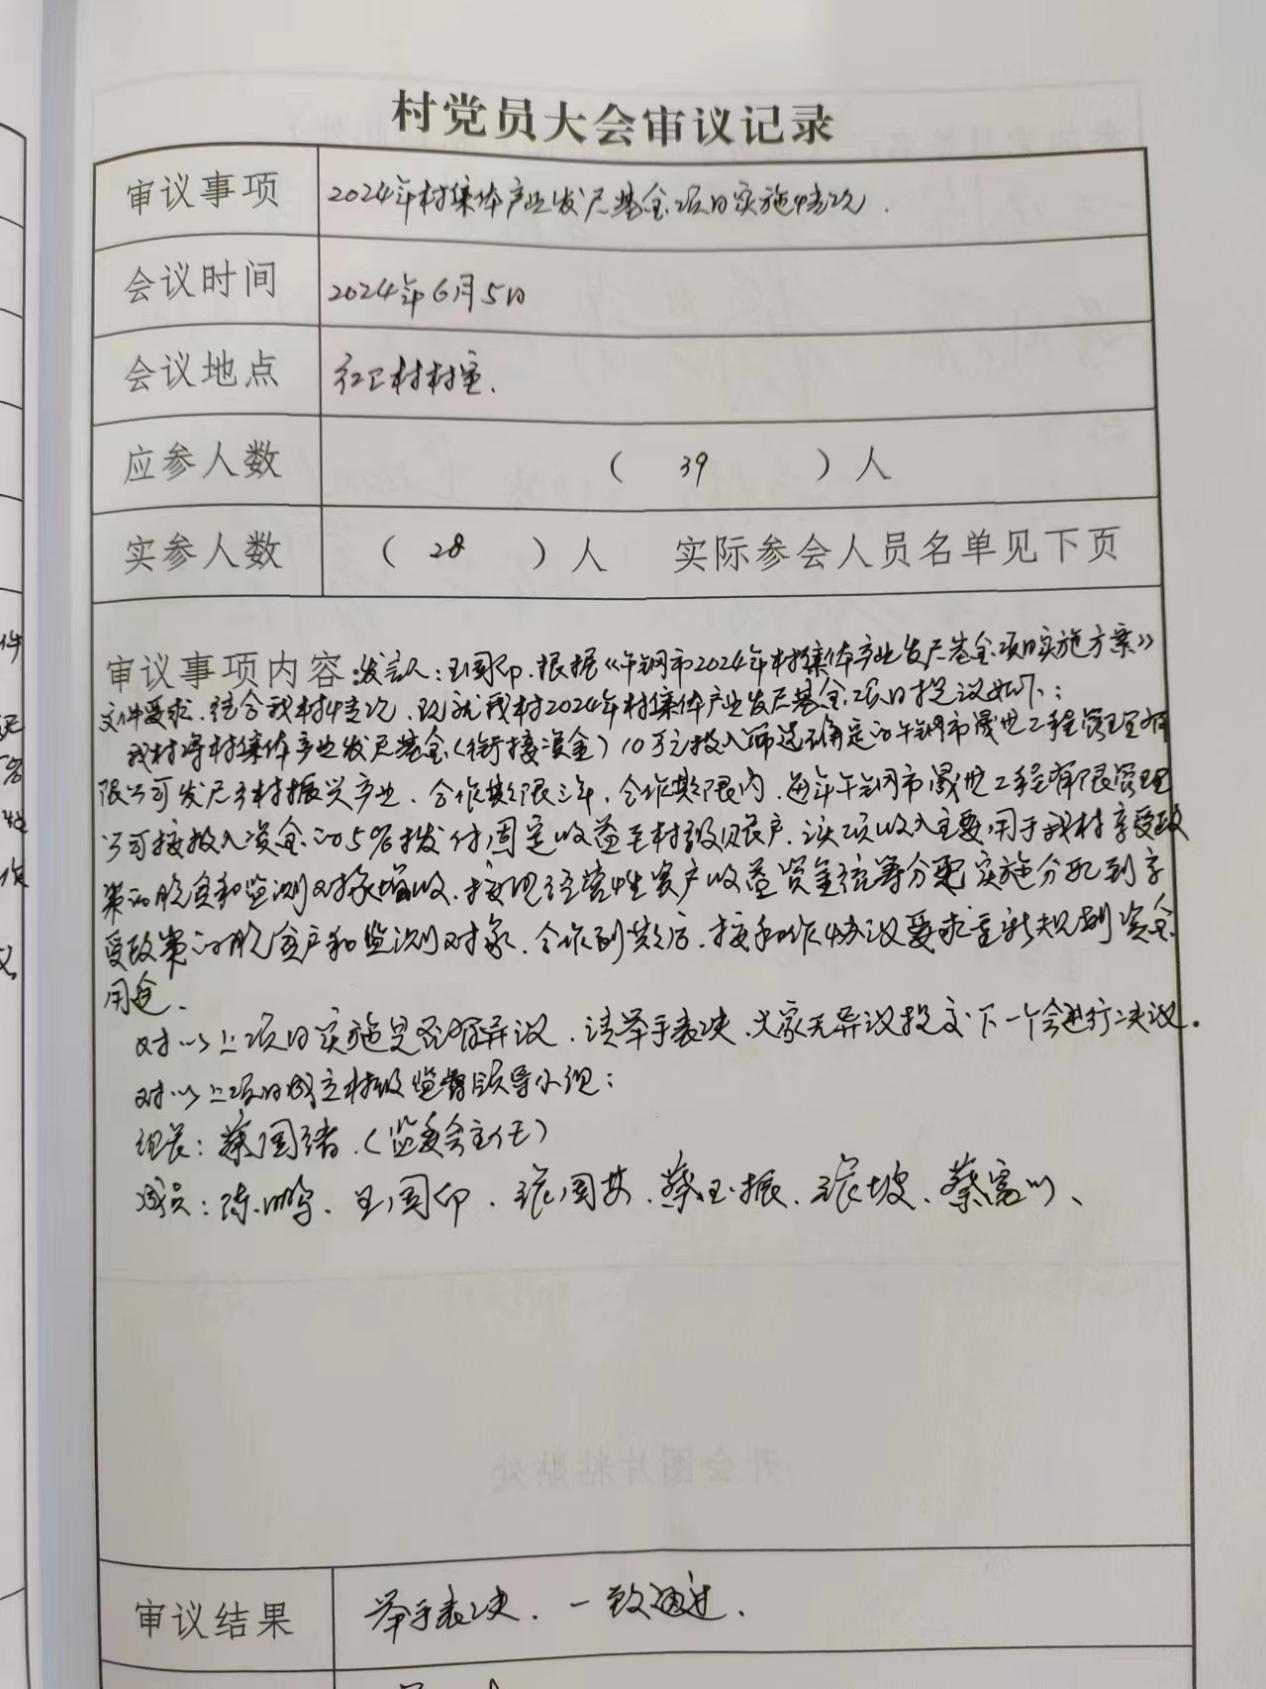 村党员大会审议记录
审议事项 2024年村集体产业发展基金项目实施情况.
会议时间 2024年6月5日
会议地点 红卫村村室.
应参人数 ( 39 ) 人
实参人数 ( 28 ) 人 实际参会人员名单见下页
审议事项内容:发言人:王国卯.根据《午钢市2024年村集体产业发展基金项目实施方案》
文件要求.结合我村情况.现就我村2024年村集体产业发展基金项目提议如下:
我村将村集体产业发展基金(衔接资金)10万元投入筛选确定的午钢市晟世工程管理有
限公司发展乡村振兴产业.合作期限三年,合作期限内,每年午钢市晟世工程有限管理
公司按投入资金的5%拨付固定收益至村级账户.该项收入主要用于我村享受政
策的脱贫和监测对象增收.按照经营性资产收益资金统筹分配实施分配到享
受政策的脱贫户和监测对象.合作到期后.按合作协议要求重新规划资金
用途.
对以上项目实施是否有异议.请举手表决.大家无异议提交下一个会进行决议.
对以上项目成立村级监督领导小组:
组长:蔡国绪.(监委会主任)
成员:陈鹏.王国卯.张国其.蔡玉振.张坡.蔡富
审议结果 举手表决.一致通过.